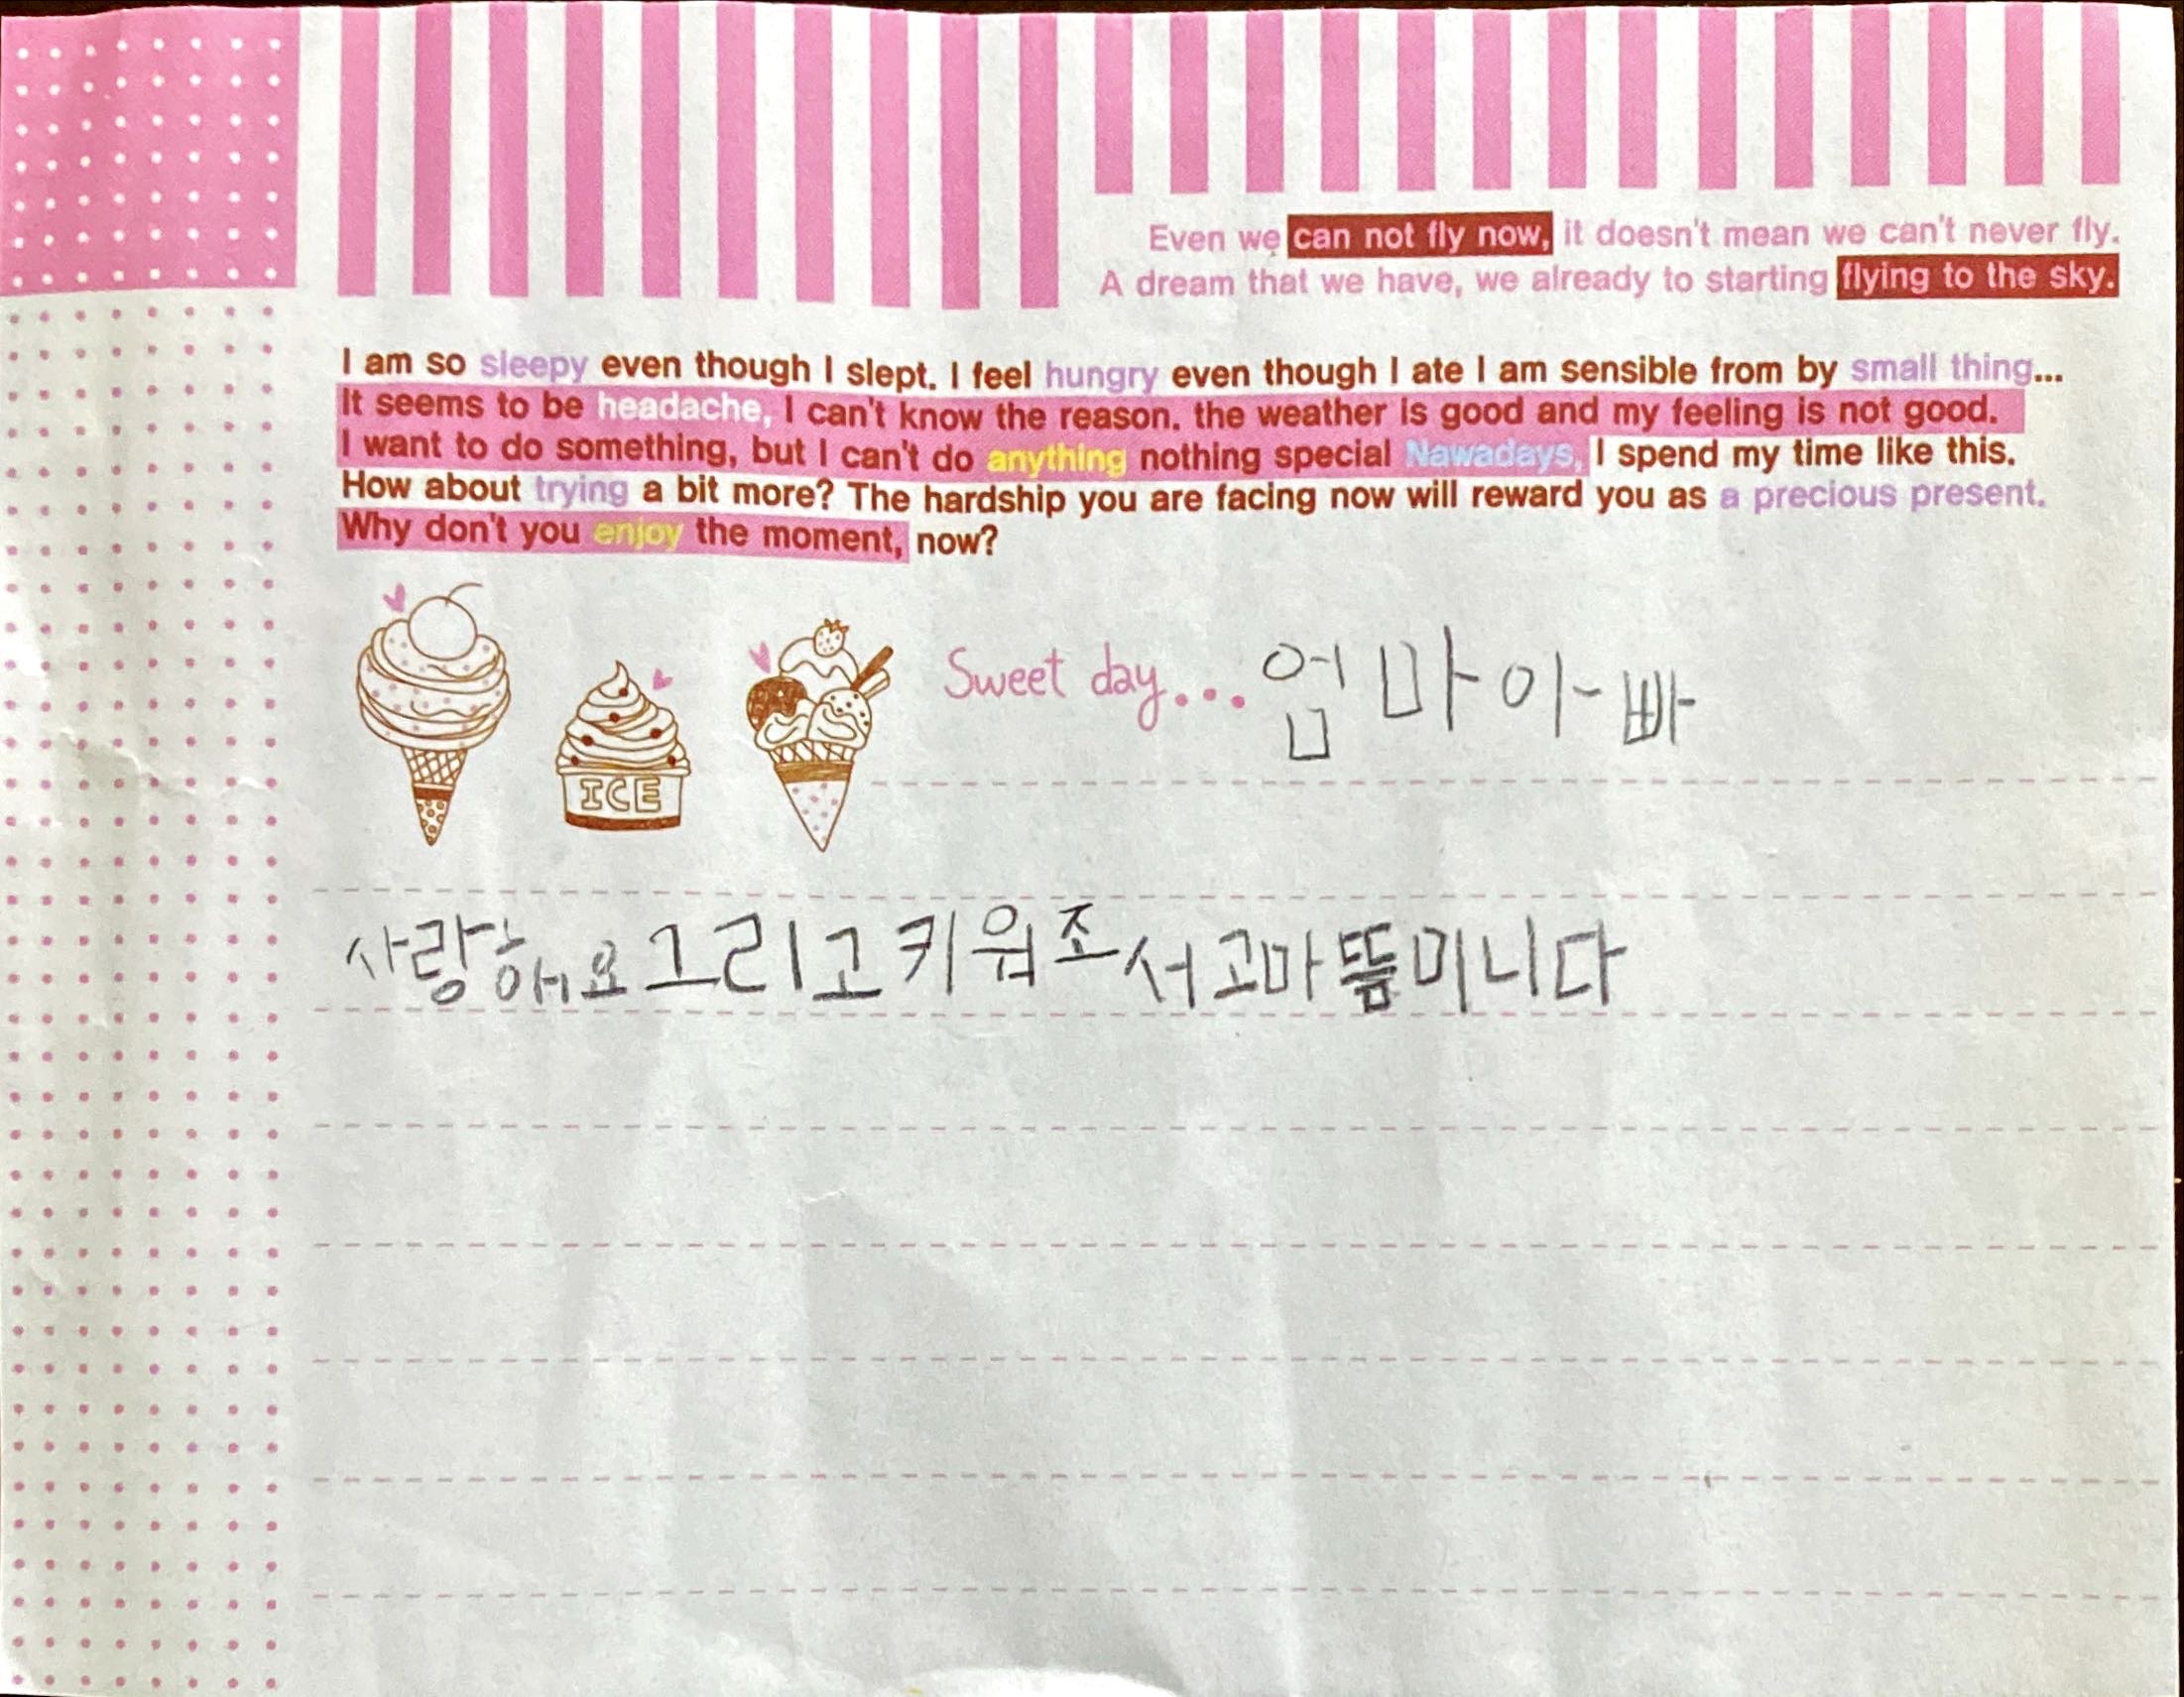 Even we can not fly now, it doesn't mean we can't never fly.
A dream that we have, we already to starting flying to the sky.
I am so sleepy even though I slept. I feel hungry even though I ate I am sensible from by small thing...
It seems to be headache, I can't know the reason. the weather is good and my feeling is not good.
I want to do something, but I can't do anything nothing special Nawadays, I spend my time like this.
How about trying a bit more? The hardship you are facing now will reward you as a precious present.
Why don't you enjoy the moment, now?
Sweet day...엄마아빠
ICE
사랑해요그리고키워조서고마뜸미니다